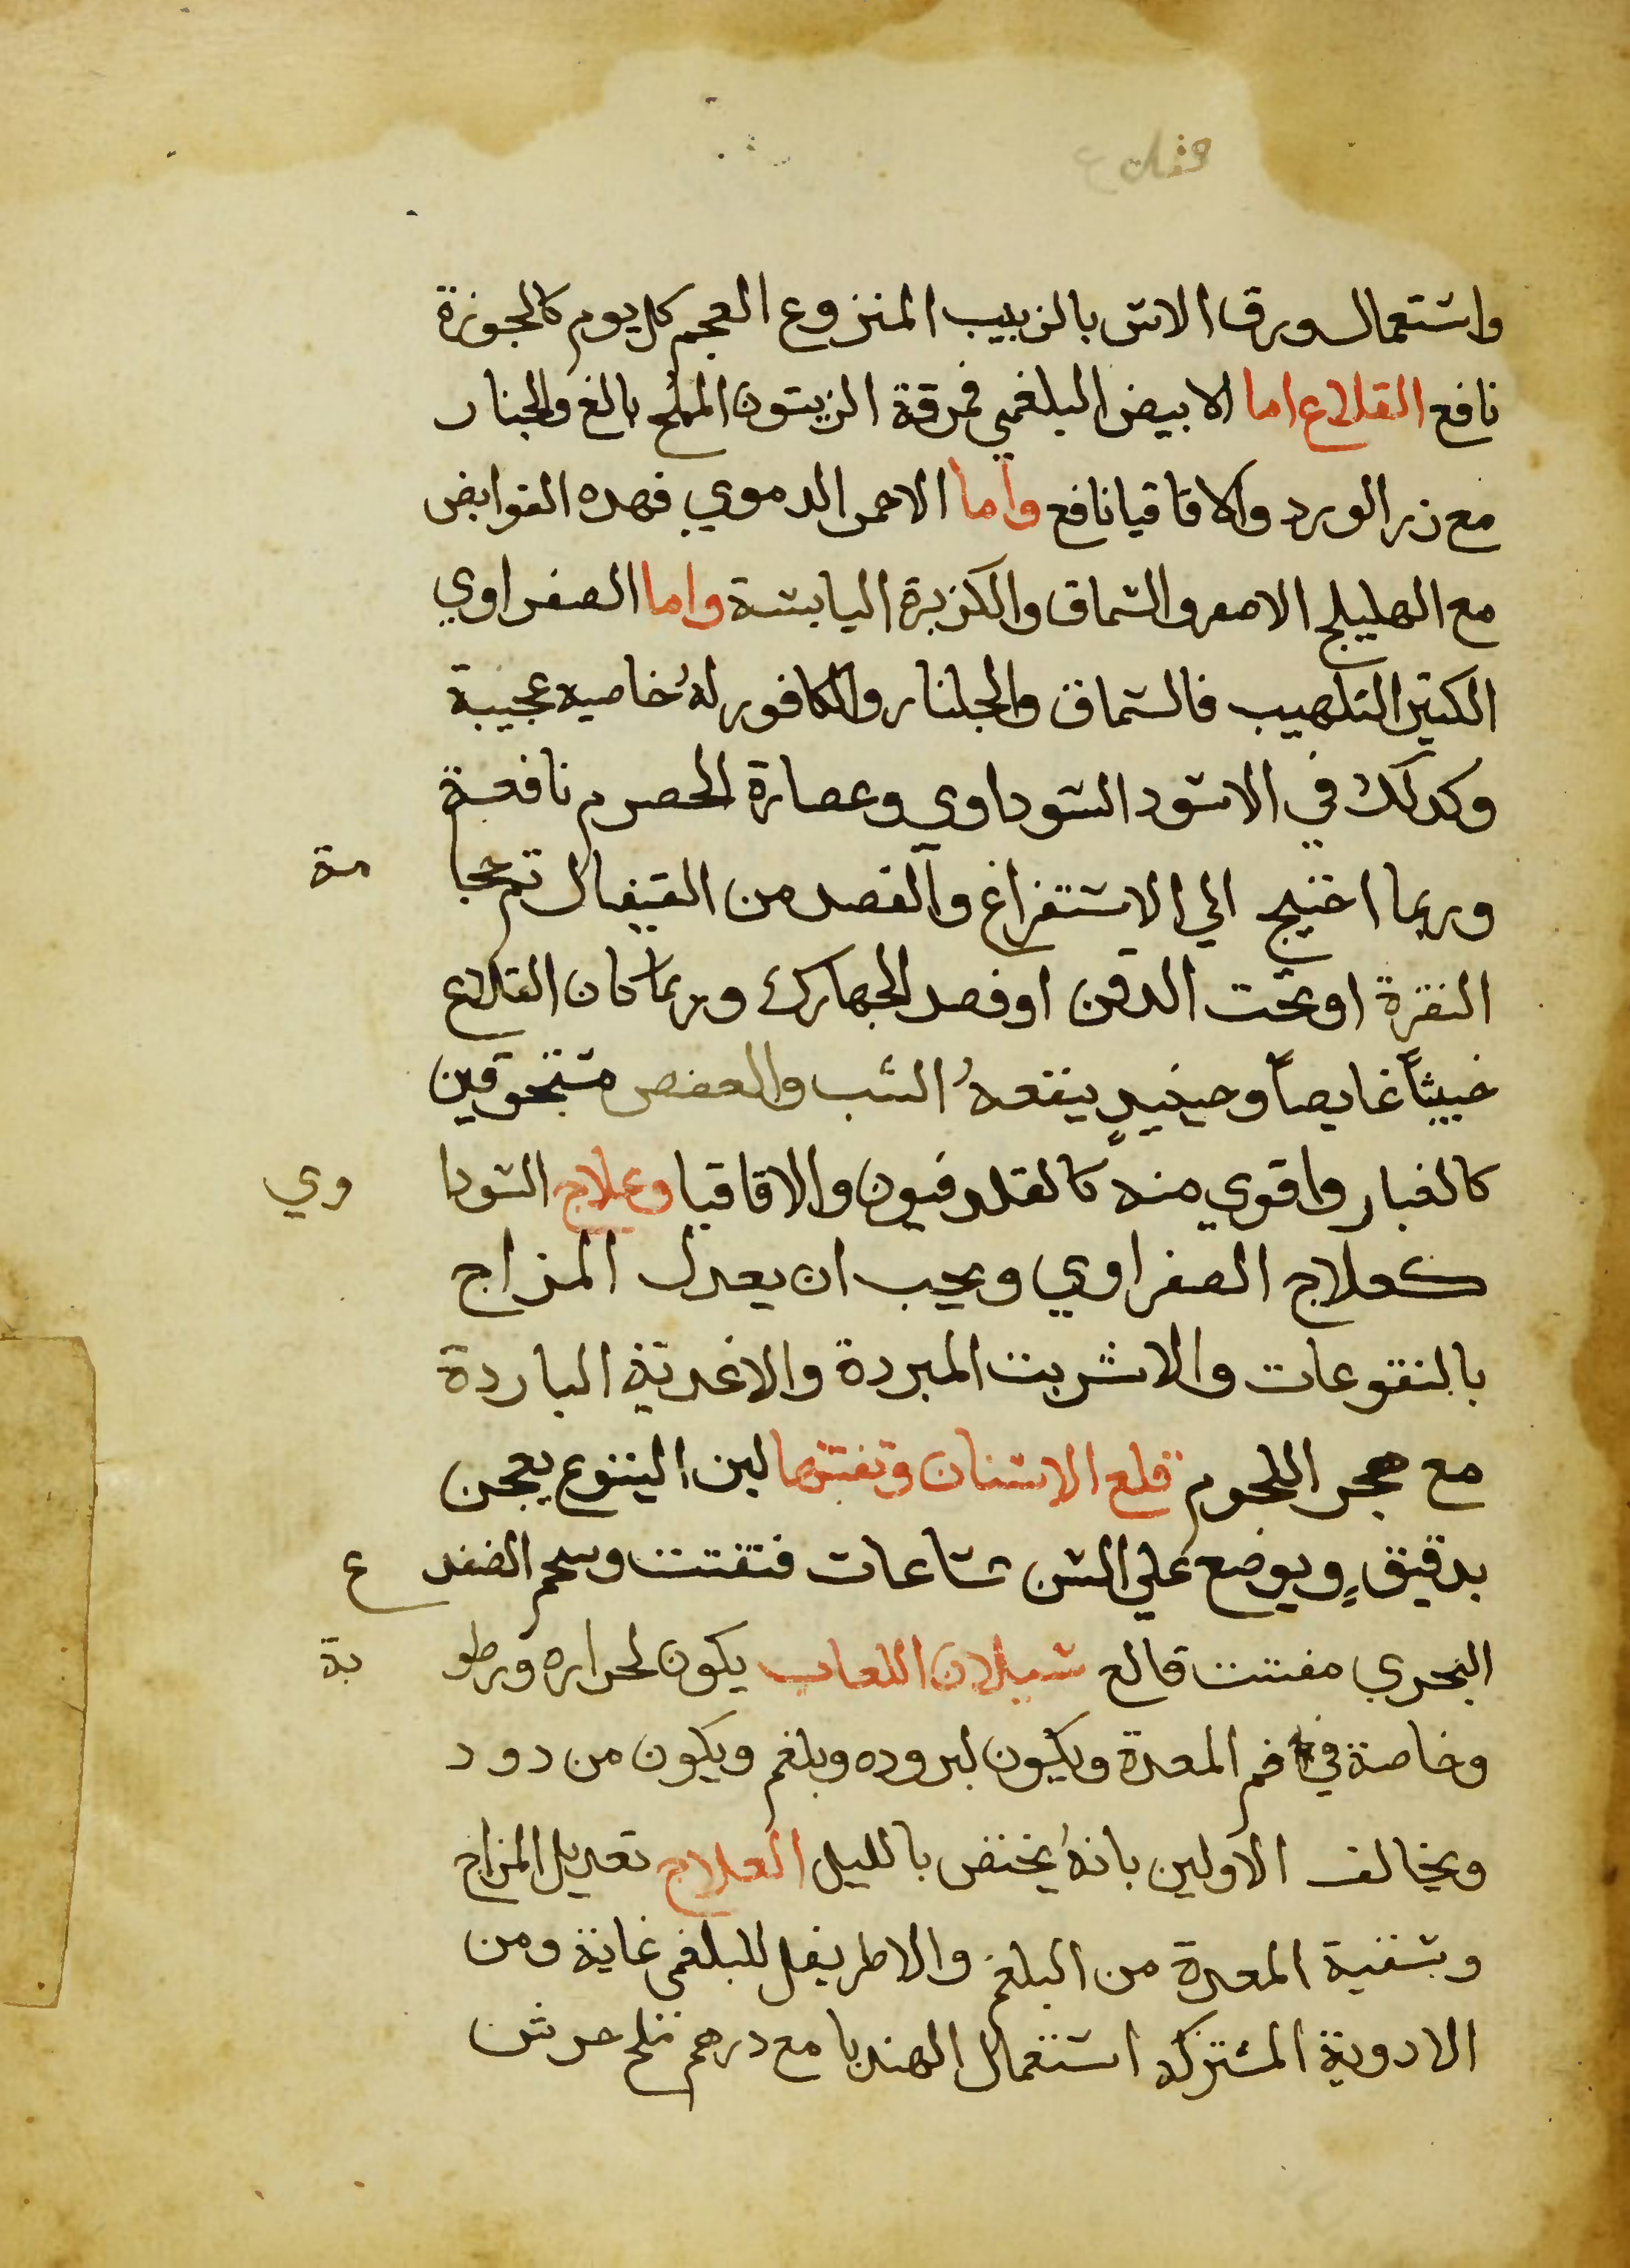 واستعمال ورق الاس بالزبيب المنزوع العجم كل يوم كالجوزة
نافع القلاع اما الابيض البلغمي فمرقة الزيتون المملح بالغ والجنار
مع زر الورد والاقاقيا نافع واما الاحمر الدموي فهده القوابض
مع الهليلج الاصفر والسماق والكزبرة اليابسة واما الصفراوي
الكثير التلهيب فالسماق والجلنار والكافور لهُ خاصيه عجيبة
وكدلك في الاسود السوداوي وعصارة الحصرم نافعة
وربما احتيج الي الاستفراغ والفصد من القيفال ثم حجامة
النقرة او تحت الدقن او فصد الجهارك وربما كان القلاع
خبيثاً غايصاً وحينيدٍ ينفعهُ الشب والعفص مسحوقين
كالغبار واقوي منه كالقلدفيون والاقاقيا وعلاج السوداوي
كعلاج الصفراوي ويجب ان يعدل المزاج
بالنقوعات والاشربت المبردة والاغدية الباردة
مع هجر اللحوم قلع الاسنان وتفتتها لبن اليتوع يعجن
بدقيقٍ ويوضع علي السن ساعات فتفتت وشحم الضفدع
البحري مفتت قالع سيلان اللعاب يكون لحراره ورطوبة
وخاصة في فم المعدة ويكون لبروده وبلغم ويكون من دود
ويخالف الاولين بانهُ يختص بالليل العلاج تعديل المزاج
وتنقية المعدة من البلغم والاطريفل للبلغمي غاية ومن
الادوية المشتركه استعمال الهندبا مع درهم ملح جرش